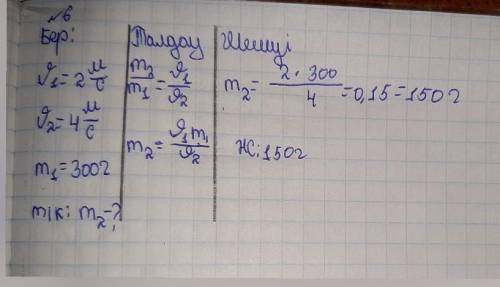 №6
Бер:
𝜗1=2 м/с
𝜗2=4 м/с
m1=300г
т/к: m2-?
Талдау
m2/m1=𝜗1/𝜗2
m2=𝜗1m1/𝜗2
Шешуі
m2=2·300/4=0,15=150г
Ж:150г